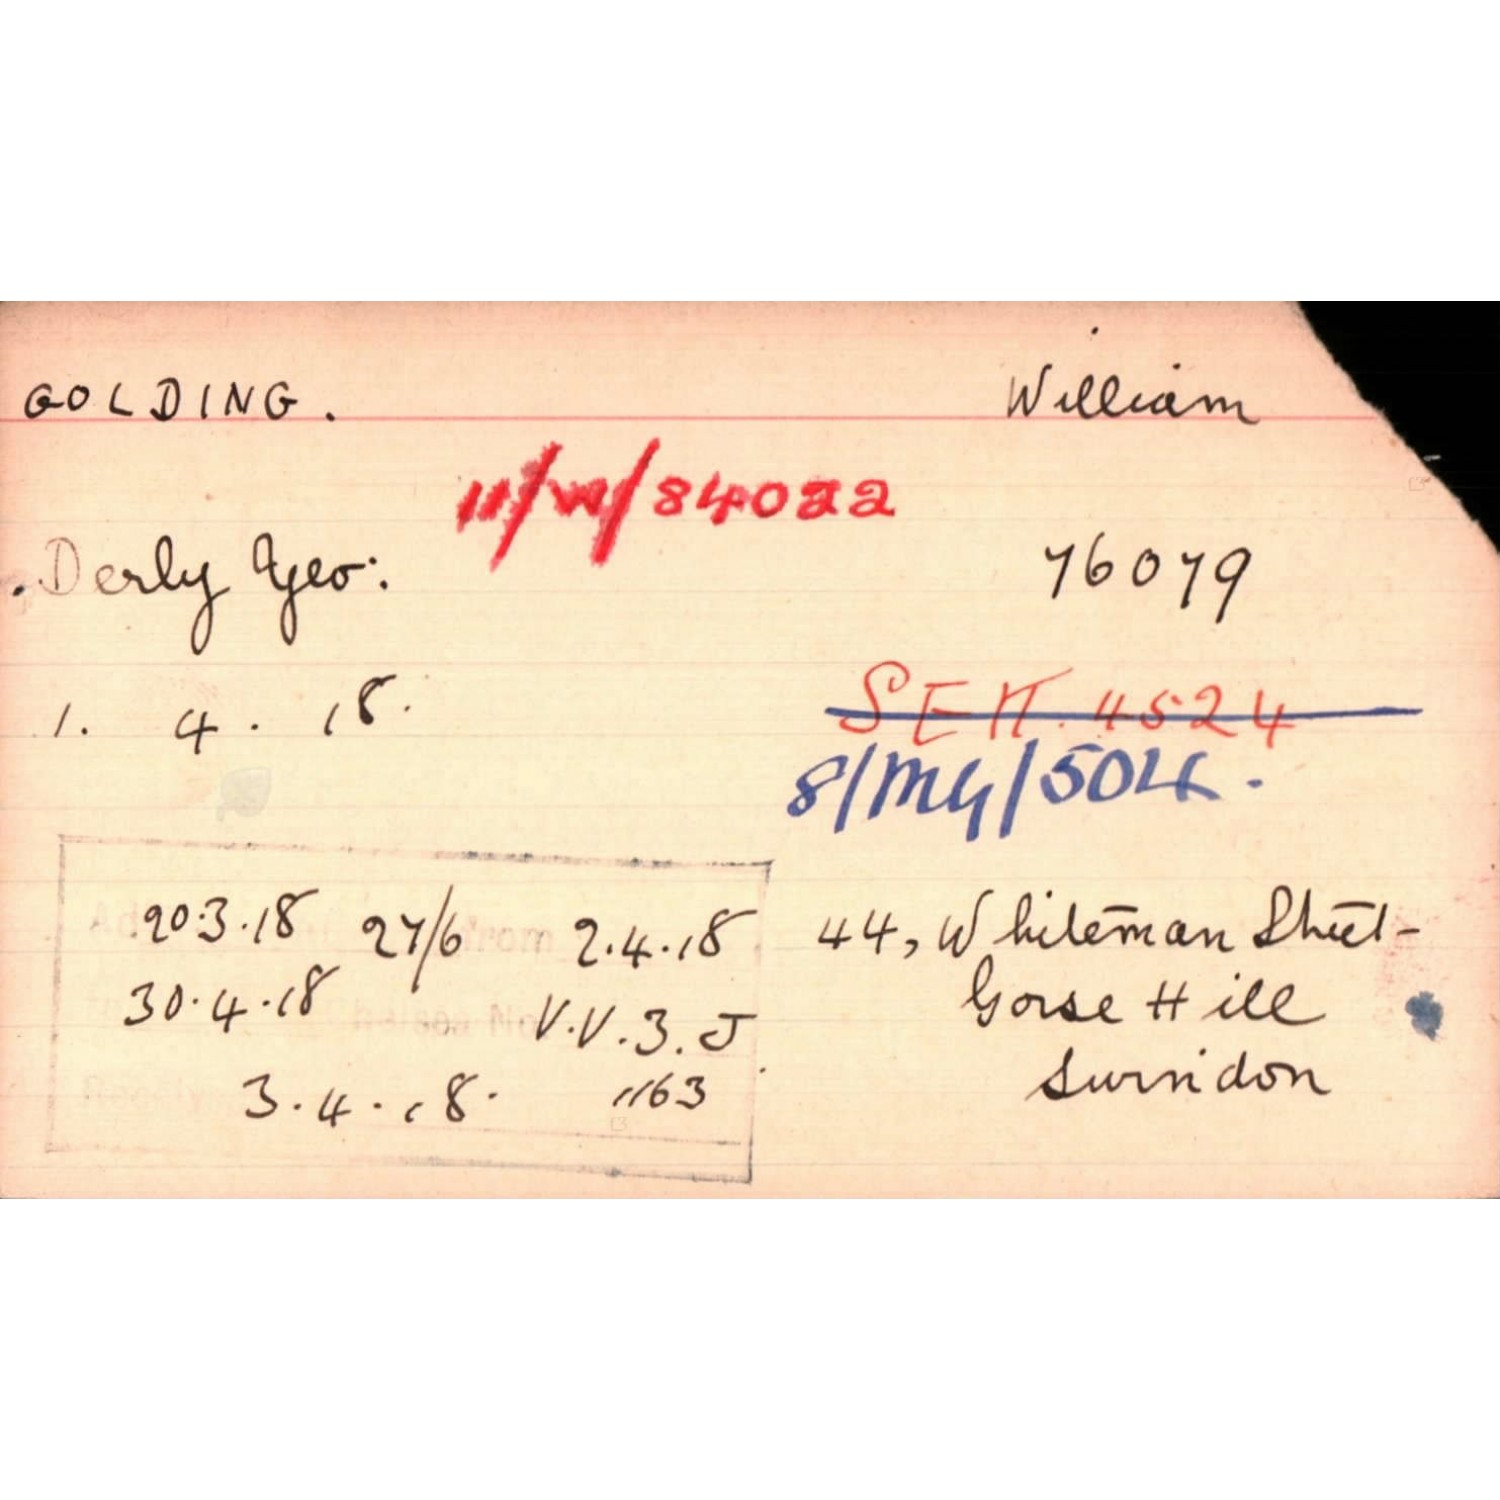 GOLDING. William
11/W/84022
Derly Yeo: 76079
1. 4. 18. SEH. 4524
8/MG/504.
20.3.18 27/6 2.4.18 44, Whiteman Street
30.4.18 V.V.3.J Gorse Hill
3.4.18. 1163 Swindon